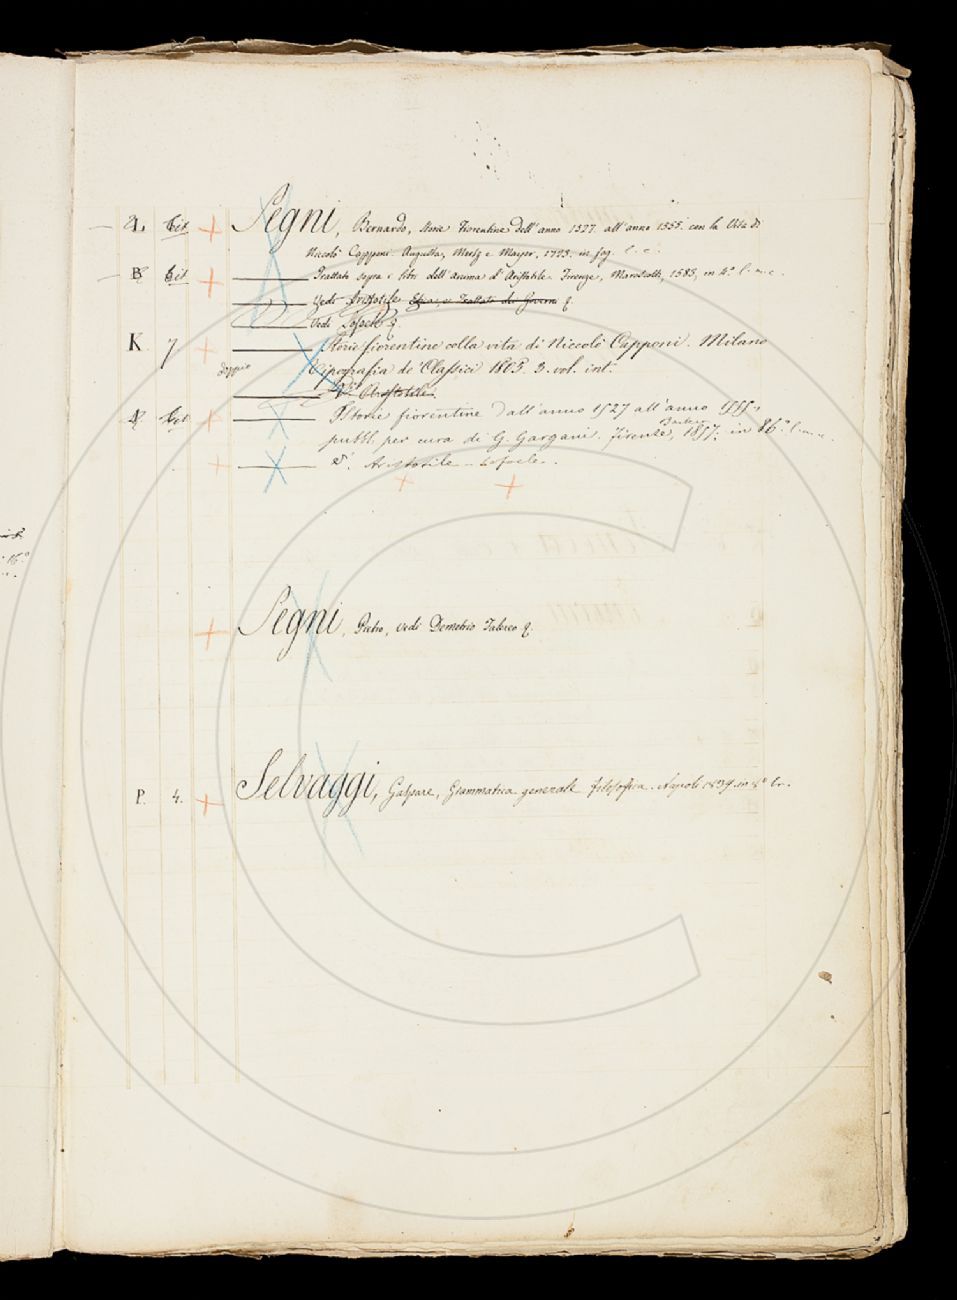 L. Cit. Segni, Bernardo, Storie Fiorentine dell'anno 1527. all'anno 1555. con la Vita di
Niccolò Capponi. Augusta, Mertz e Mayer, 1723. in fog. l. c.
B Cit Trattato sopra i libri dell'anima d'Aristotile. Firenze, Marescotti, 1583, in 4°.
Vedi Aristotile Trattato dei Governi q.
Vedi Sofocle q.
K. 7 Storie fiorentine colla vita di Niccolò Capponi. Milano
doppio Tipografia de' Classici 1805. 3. vol. int.
V. Aristotile.
Cit Istorie fiorentine dall'anno 1527 all'anno 1555,
pubbl. per cura di G. Gargani. Firenze, Barbèra, 1857; in 16°.
V. Aristotile - Sofocle.
Segni, Pietro, vedi Demetrio Falereo q.
P. 4. Selvaggi, Gaspare, Grammatica generale filosofica. Napoli 1839. in 8° br.
16°